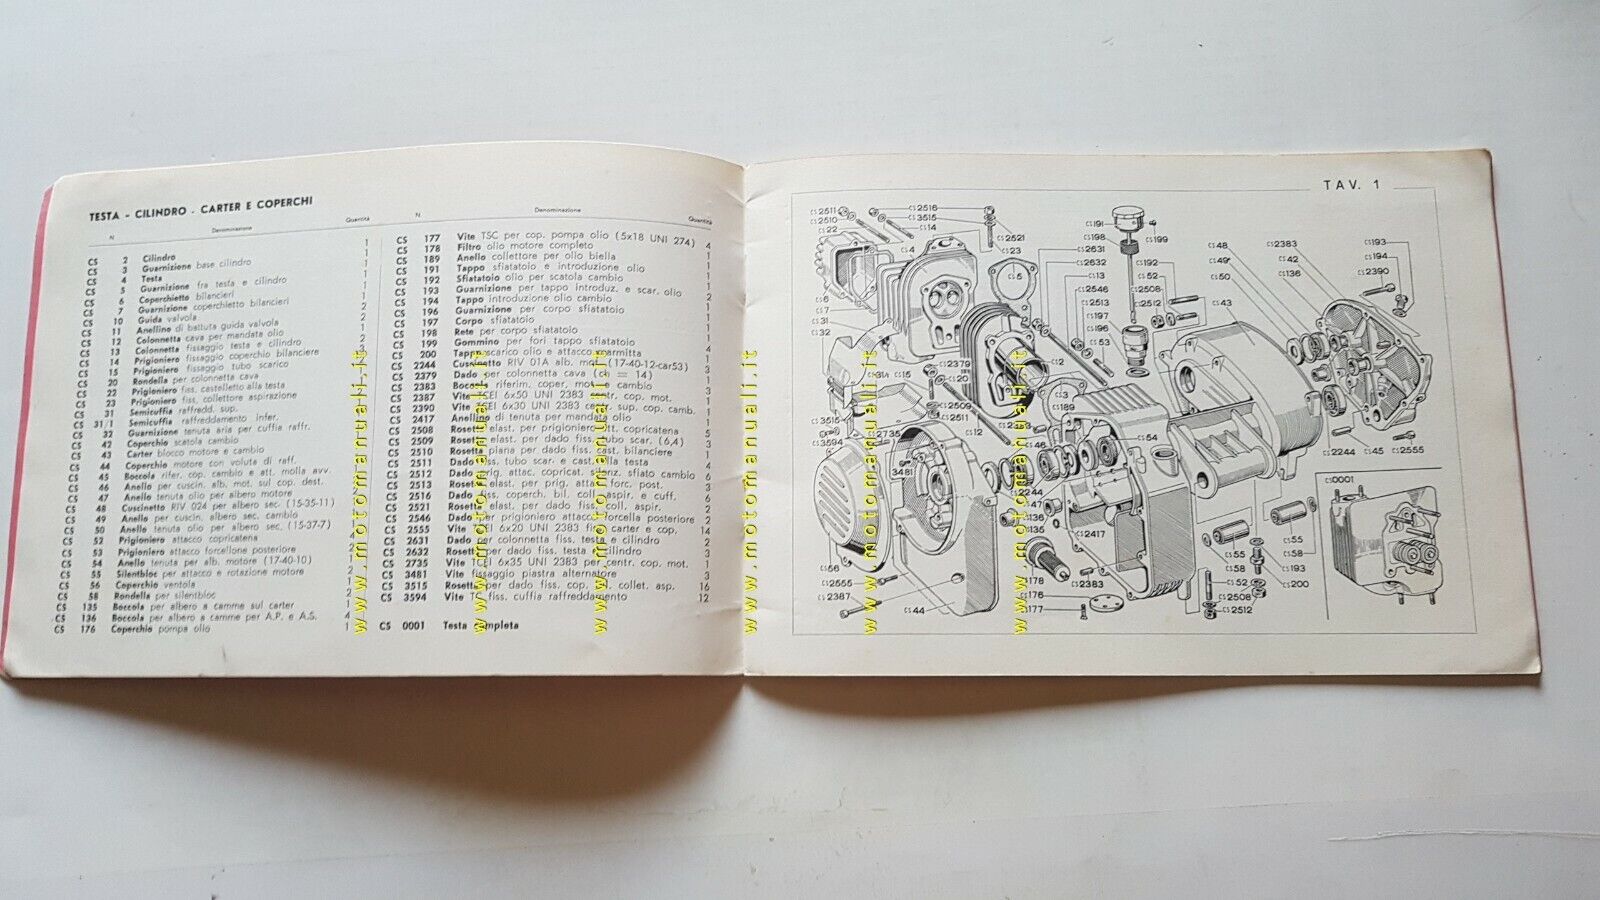 TESTA - CILINDRO . CARTER E COPERCHI
N Denominazione Quantità
CS 2 Cilindro 1
CS 3 Guarnizione base cilindro 1
CS 4 Testa 1
CS 5 Guarnizione fra testa e cilindro 1
CS 6 Coperchietto bilancieri
CS 7 Guarnizione coperchietto bilancieri
CS 10 Guida valvola 2
CS 11 Anellino di battuta guida valvola 2
CS 12 Colonnetta cava per mandata olio
CS 13 Colonnetta fissaggio testa e cilindro
CS 14 Prigioniero fissaggio coperchio bilanciere
CS 15 Prigioniero fissaggio tubo scarico
CS 20 Rondella per colonnetta cava
CS 22 Prigioniero fiss. castelletto alla testa
CS 23 Prigioniero fiss. collettore aspirazione
CS 31 Semicuffia raffredd. sup.
CS 31/1 Semicuffia raffreddamento infer.
CS 32 Guarnizione tenuta aria per cuffia raffr.
CS 42 Coperchio scatola cambio
CS 43 Carter blocco motore e cambio
CS 44 Coperchio motore con voluta di raff.
CS 45 Boccola rifer. cop. cambio e att. molla avv.
CS 46 Anello per cuscin. alb. mot. sul cop. dest.
CS 47 Anello tenuta olio per albero motore
CS 48 Cuscinetto RIV 024 per albero sec. (15-35-11)
CS 49 Anello per cuscin. albero sec. cambio
CS 50 Anello tenuta olio per albero sec. (15-37-7)
CS 52 Prigioniero attacco copricatena
CS 53 Prigioniero attacco forcellone posteriore
CS 54 Anello tenuta per alb. motore (17-40-10)
CS 55 Silentbloc per attacco e rotazione motore
CS 56 Coperchio ventola
CS 58 Rondella per silentbloc
CS 135 Boccola per albero a camme sul carter
CS 136 Boccola per albero a camme per A.P. e A.S. 4
CS 176 Coperchio pompa olio 1
N Denominazione Quantità
CS 177 Vite TSC per cop. pompa olio (5x18 UNI 274) 4
CS 178 Filtro olio motore completo 1
CS 189 Anello collettore per olio biella 1
CS 191 Tappo sfiatatoio e introduzione olio 1
CS 192 Sfiatatoio olio per scatola cambio 1
CS 193 Guarnizione per tappo introduz. e scar. olio 2
CS 194 Tappo introduzione olio cambio 1
CS 196 Guarnizione per corpo sfiatatoio 1
CS 197 Corpo sfiatatoio 1
CS 198 Rete per corpo sfiatatoio 1
CS 199 Gommino per fori tappo sfiatatoio
CS 200 Tappo scarico olio e attacco marmitta
CS 2244 Cuscinetto RIV 01A alb. mot. (17-40-12-car53)
CS 2379 Dado per colonnetta cava (ch = 14)
CS 2383 Boccola riferim. coper. mot. e cambio
CS 2387 Vite TCEI 6x50 UNI 2383 centr. cop. mot.
CS 2390 Vite TCEI 6x30 UNI 2383 centr. sup. cop. camb.
CS 2417 Anellino di tenuta per mandata olio
CS 2508 Rosetta elast. per prigioniero att. copricatena 5
CS 2509 Rosetta elast. per dado fiss. tubo scar. (6,4) 3
CS 2510 Rosetta piana per dado fiss. cast. bilanciere
CS 2511 Dado fiss. tubo scar. e cast. alla testa
CS 2512 Dado prig. attac. copricat. silenz. sfiato cambio 6
CS 2513 Rosetta elast. per prig. attac. forc. post. 3
CS 2516 Dado fiss. coperch. bil. coll. aspir. e cuff. 6
CS 2521 Rosetta elast. per dado fiss. coll. aspir. 2
CS 2546 Dado per prigioniero attacco forcella posteriore 2
CS 2555 Vite TCEI 6x20 UNI 2383 fiss. carter e cop. 14
CS 2631 Dado per colonnetta fiss. testa e cilindro 2
CS 2632 Rosetta per dado fiss. testa e cilindro 3
CS 2735 Vite TCEI 6x35 UNI 2383 per centr. cop. mot. 1
CS 3481 Vite fissaggio piastra alternatore 3
CS 3515 Rosetta per dado fiss. cop. bil. collet. asp. 16
CS 3594 Vite TC fiss. cuffia raffreddamento 12
CS 0001 Testa completa
TAV. 1
CS2511 CS2516 CS191
CS2510 CS3515
CS22 CS14 CS198 CS199
CS2521 CS2631
CS4 CS23 CS2632 CS192
CS5 CS13 CS52
CS2546 CS2508
CS2513 CS2512
CS197 CS43
CS196
CS53
CS48 CS2383 CS193
CS49 CS42 CS194
CS50 CS136 CS2390
CS6
CS7
CS31
CS32
CS2379 CS12
CS15 CS20 CS3
CS2509 CS189
CS2511
CS3515 CS2735 CS12 CS54
CS3594 CS46
CS3481
CS2244 CS45 CS2555
CS2244
CS47
CS136
CS135 CS2417
CS0001
CS55 CS55
CS58 CS58
CS56 CS178 CS2383 CS52 CS193
CS2555 CS176 CS2508 CS200
CS2387 CS44 CS177 CS2512
www.motomanuali.it
www.motomanuali.it
www.motomanuali.it
www.motomanuali.it
www.motomanuali.it
www.motomanuali.it